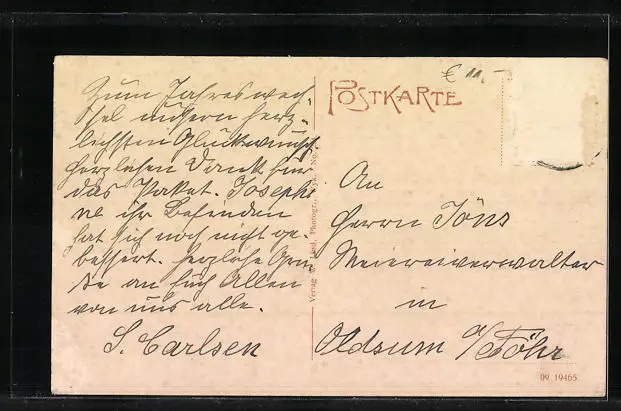 Zum Jahreswech-
sel unsern herz-
lichsten Glückwunsch
herzlichen Dank für
das Paket. Josephi-
ne ihr Befinden
hat sich noch nicht ge-
bessert. herzliche Grü-
ße an Euch Allen
von uns alle.
S. Carlsen
Photogr., Wyk. No.
€ 11,-
POSTKARTE
An
Herrn Jöns
Meiereiverwalter
in
Oldsum a/Föhr
09 19465